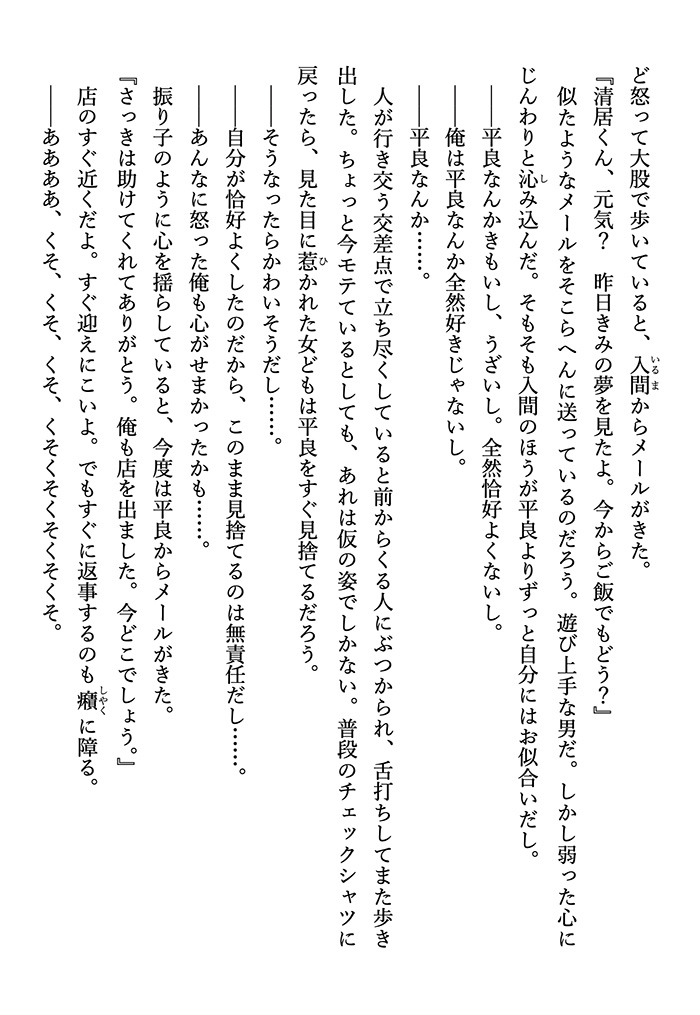 ど怒って大股で歩いていると、入間からメールがきた。
『清居くん、元気？　昨日きみの夢を見たよ。今からご飯でもどう？』
似たようなメールをそこらへんに送っているのだろう。遊び上手な男だ。しかし弱った心に
じんわりと沁み込んだ。そもそも入間のほうが平良よりずっと自分にはお似合いだし。
――平良なんかきもいし、うざいし。全然恰好よくないし。
――俺は平良なんか全然好きじゃないし。
――平良なんか……。
人が行き交う交差点で立ち尽くしていると前からくる人にぶつかられ、舌打ちしてまた歩き
出した。ちょっと今モテているとしても、あれは仮の姿でしかない。普段のチェックシャツに
戻ったら、見た目に惹かれた女どもは平良をすぐ見捨てるだろう。
――そうなったらかわいそうだし……。
――自分が恰好よくしたのだから、このまま見捨てるのは無責任だし……。
――あんなに怒った俺も心がせまかったかも……。
振り子のように心を揺らしていると、今度は平良からメールがきた。
『さっきは助けてくれてありがとう。俺も店を出ました。今どこでしょう。』
店のすぐ近くだよ。すぐ迎えにこいよ。でもすぐに返事するのも癪に障る。
――ああああ、くそ、くそ、くそ、くそくそくそくそくそ。